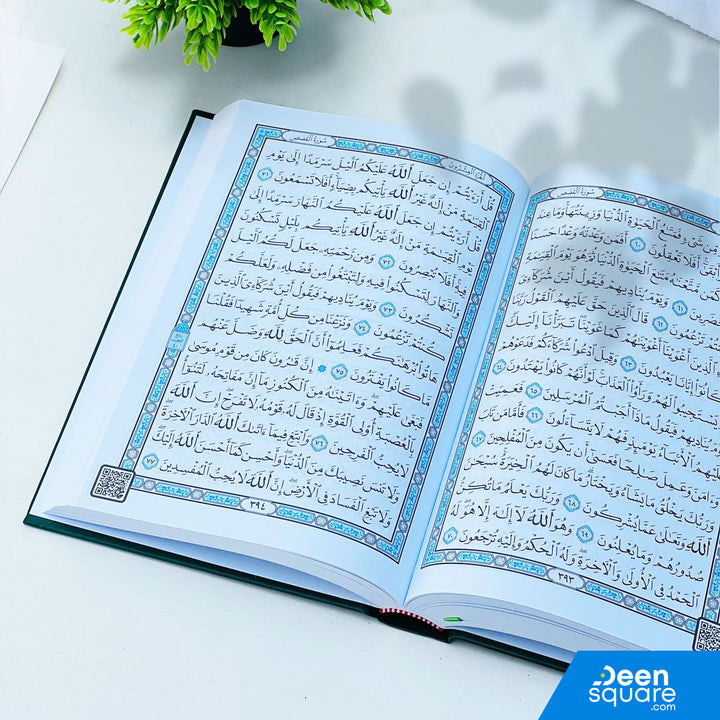 سُورَةُ القَصَصِ
مِّن شَىْءٍ فَمَتَٰعُ ٱلْحَيَوٰةِ ٱلدُّنْيَا وَزِينَتُهَا وَمَا عِندَ
وَأَبْقَىٰٓ أَفَلَا تَعْقِلُونَ ٦٠ أَفَمَن وَعَدْنَٰهُ وَعْدًا حَسَنًا
مَتَٰعَ ٱلْحَيَوٰةِ ٱلدُّنْيَا ثُمَّ هُوَ يَوْمَ
٦١ وَيَوْمَ يُنَادِيهِمْ فَيَقُولُ أَيْنَ شُرَكَآءِىَ
كُنتُمْ تَزْعُمُونَ ٦٢ قَالَ ٱلَّذِينَ حَقَّ عَلَيْهِمُ ٱلْقَوْلُ رَبَّنَا
ٱلَّذِينَ أَغْوَيْنَآ أَغْوَيْنَٰهُمْ كَمَا غَوَيْنَا تَبَرَّأْنَآ إِلَيْكَ
كَانُوٓا۟ إِيَّانَا يَعْبُدُونَ ٦٣ وَقِيلَ ٱدْعُوا۟ شُرَكَآءَكُمْ فَدَعَوْهُمْ
يَسْتَجِيبُوا۟ لَهُمْ وَرَأَوُا۟ ٱلْعَذَابَ لَوْ أَنَّهُمْ كَانُوا۟ يَهْتَدُونَ ٦٤
يُنَادِيهِمْ فَيَقُولُ مَاذَآ أَجَبْتُمُ ٱلْمُرْسَلِينَ ٦٥ فَعَمِيَتْ
عَلَيْهِمُ ٱلْأَنۢبَآءُ يَوْمَئِذٍ فَهُمْ لَا يَتَسَآءَلُونَ ٦٦ فَأَمَّا مَن تَابَ
وَءَامَنَ وَعَمِلَ صَٰلِحًا فَعَسَىٰٓ أَن يَكُونَ مِنَ ٱلْمُفْلِحِينَ ٦٧
وَرَبُّكَ يَخْلُقُ مَا يَشَآءُ وَيَخْتَارُ مَا كَانَ لَهُمُ ٱلْخِيَرَةُ سُبْحَٰنَ
ٱللَّهِ وَتَعَٰلَىٰ عَمَّا يُشْرِكُونَ ٦٨ وَرَبُّكَ يَعْلَمُ مَا تُكِنُّ
صُدُورُهُمْ وَمَا يُعْلِنُونَ ٦٩ وَهُوَ ٱللَّهُ لَآ إِلَٰهَ إِلَّا هُوَ لَهُ
ٱلْحَمْدُ فِى ٱلْأُولَىٰ وَٱلْءَاخِرَةِ وَلَهُ ٱلْحُكْمُ وَإِلَيْهِ تُرْجَعُونَ ٧٠
٣٩٣
الجُزْءُ العِشْرُونَ
سُورَةُ القَصَصِ
قُلْ أَرَءَيْتُمْ إِن جَعَلَ ٱللَّهُ عَلَيْكُمُ ٱلَّيْلَ سَرْمَدًا إِلَىٰ يَوْمِ
ٱلْقِيَٰمَةِ مَنْ إِلَٰهٌ غَيْرُ ٱللَّهِ يَأْتِيكُم بِضِيَآءٍ أَفَلَا تَسْمَعُونَ ٧١
قُلْ أَرَءَيْتُمْ إِن جَعَلَ ٱللَّهُ عَلَيْكُمُ ٱلنَّهَارَ سَرْمَدًا إِلَىٰ
يَوْمِ ٱلْقِيَٰمَةِ مَنْ إِلَٰهٌ غَيْرُ ٱللَّهِ يَأْتِيكُم بِلَيْلٍ تَسْكُنُونَ
فِيهِ أَفَلَا تُبْصِرُونَ ٧٢ وَمِن رَّحْمَتِهِۦ جَعَلَ لَكُمُ ٱلَّيْلَ
وَٱلنَّهَارَ لِتَسْكُنُوا۟ فِيهِ وَلِتَبْتَغُوا۟ مِن فَضْلِهِۦ وَلَعَلَّكُمْ
تَشْكُرُونَ ٧٣ وَيَوْمَ يُنَادِيهِمْ فَيَقُولُ أَيْنَ شُرَكَآءِىَ ٱلَّذِينَ
كُنتُمْ تَزْعُمُونَ ٧٤ وَنَزَعْنَا مِن كُلِّ أُمَّةٍ شَهِيدًا فَقُلْنَا
هَاتُوا۟ بُرْهَٰنَكُمْ فَعَلِمُوٓا۟ أَنَّ ٱلْحَقَّ لِلَّهِ وَضَلَّ عَنْهُم
مَّا كَانُوا۟ يَفْتَرُونَ ٧٥ ۞ إِنَّ قَٰرُونَ كَانَ مِن قَوْمِ مُوسَىٰ
فَبَغَىٰ عَلَيْهِمْ وَءَاتَيْنَٰهُ مِنَ ٱلْكُنُوزِ مَآ إِنَّ مَفَاتِحَهُۥ لَتَنُوٓأُ
بِٱلْعُصْبَةِ أُو۟لِى ٱلْقُوَّةِ إِذْ قَالَ لَهُۥ قَوْمُهُۥ لَا تَفْرَحْ إِنَّ ٱللَّهَ
لَا يُحِبُّ ٱلْفَرِحِينَ ٧٦ وَٱبْتَغِ فِيمَآ ءَاتَىٰكَ ٱللَّهُ ٱلدَّارَ ٱلْءَاخِرَةَ
وَلَا تَنسَ نَصِيبَكَ مِنَ ٱلدُّنْيَا وَأَحْسِن كَمَآ أَحْسَنَ ٱللَّهُ إِلَيْكَ
وَلَا تَبْغِ ٱلْفَسَادَ فِى ٱلْأَرْضِ إِنَّ ٱللَّهَ لَا يُحِبُّ ٱلْمُفْسِدِينَ ٧٧
٣٩٤
Deen
square
.com